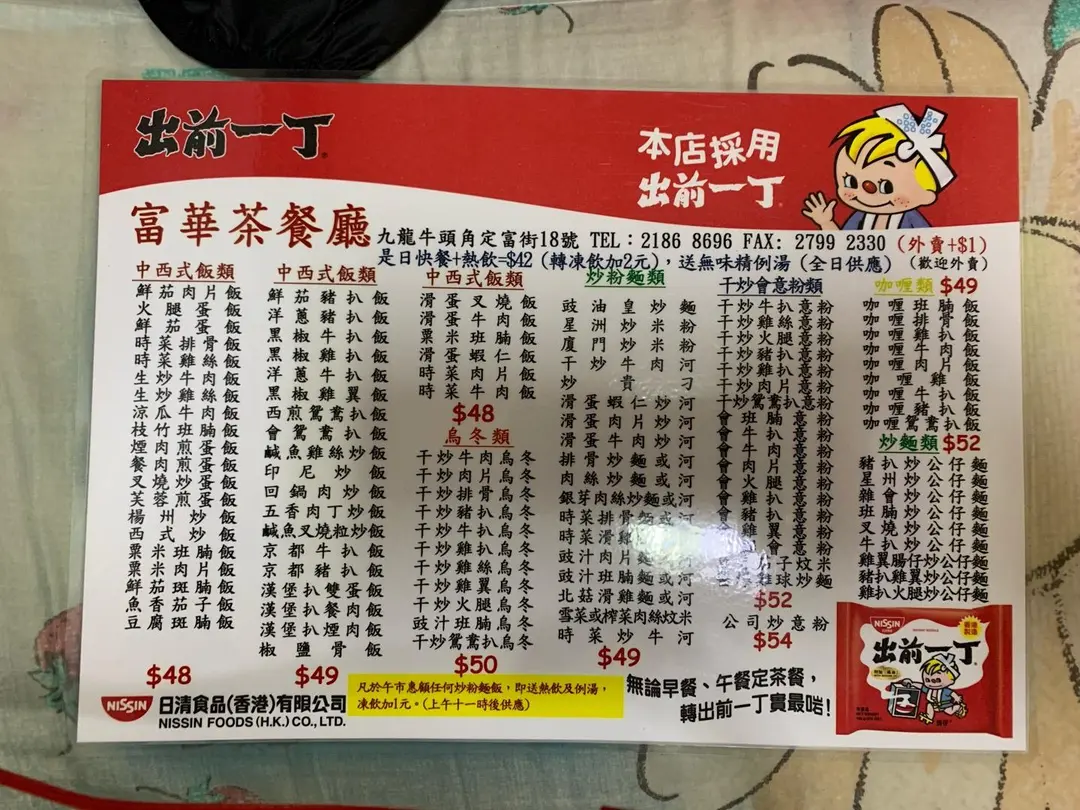 出前一丁
本店採用
出前一丁
富華茶餐廳
九龍牛頭角定富街18號 TEL：2186 8696 FAX: 2799 2330 (外賣+$1)
是日快餐+熱飲=$42 (轉凍飲加2元)，送無味精例湯 (全日供應) (歡迎外賣)
中西式飯類
鮮茄肉片飯
火腿蛋飯
鮮茄蛋飯
時菜排骨飯
時菜雞絲飯
生炒牛肉飯
生炒雞絲飯
涼瓜牛肉飯
枝竹班腩飯
煙肉煎蛋飯
餐肉煎蛋飯
叉燒炒蛋飯
芙蓉煎蛋飯
楊州炒飯
西式炒飯
粟米班腩飯
粟米肉片飯
鮮茄斑腩飯
魚香茄子飯
豆腐斑腩飯
$48
中西式飯類
鮮茄豬扒飯
洋蔥豬扒飯
黑椒牛扒飯
黑椒雞扒飯
洋蔥牛扒飯
黑椒雞翼飯
西煎鴛鴦扒飯
會鴛鴦扒飯
鹹魚雞絲炒飯
印尼炒飯
回鍋肉炒飯
五香肉丁炒飯
鹹魚叉燒粒炒飯
京都牛扒飯
京都豬扒飯
漢堡扒雙蛋飯
漢堡扒餐肉飯
漢堡扒煙肉飯
椒鹽骨飯
$49
中西式飯類
滑蛋叉燒飯
滑蛋牛肉飯
粟米班腩飯
滑蛋蝦仁飯
時菜肉片飯
時菜牛肉飯
$48
烏冬類
干炒牛肉烏冬
干炒肉片烏冬
干炒排骨烏冬
干炒豬扒烏冬
干炒牛扒烏冬
干炒雞扒烏冬
干炒雞絲烏冬
干炒雞翼烏冬
干炒火腿烏冬
豉汁班腩烏冬
干炒鴛鴦扒烏冬
$50
炒粉麵類
豉油皇炒麵
星洲炒米粉
廈門炒米粉
干炒牛肉河
炒貴刁
滑蛋蝦仁炒河
滑蛋肉片炒河
滑蛋牛肉炒河
排骨炒麵或河
肉絲炒麵或河
銀芽肉絲炒麵或河
時菜排骨麵或河
時菜滑雞
豉汁肉片麵河
豉汁班腩麵或河
北菇滑雞麵或河
雪菜或榨菜肉絲炆米
時菜炒牛河
$49
干炒會意粉類
干炒牛扒意粉
干炒雞絲意粉
干炒火腿意粉
干炒豬扒意粉
干炒雞扒意粉
干炒肉片意粉
干炒鴛鴦扒意粉
會班腩意粉
會牛扒意粉
會牛肉意粉
會肉片意粉
會火腿意粉
會雞絲意粉
會豬扒意粉
會雞翼意粉
會雞意粉
子炆米
球炒麵
$52
公司炒意粉
$54
咖喱類 $49
咖喱班腩飯
咖喱排骨飯
咖喱雞扒飯
咖喱牛肉飯
咖喱肉片飯
咖喱雞飯
咖喱牛扒飯
咖喱豬扒飯
咖喱鴛鴦飯
炒麵類 $52
豬扒炒公仔麵
星州炒公仔麵
雜會炒公仔麵
班腩炒公仔麵
叉燒炒公仔麵
牛扒炒公仔麵
雞翼腸仔炒公仔麵
豬扒雞翼炒公仔麵
雞扒火腿炒公仔麵
NISSIN
日清食品(香港)有限公司
NISSIN FOODS (H.K.) CO., LTD.
凡於午市惠顧任何炒粉麵飯，即送熱飲及例湯，
凍飲加1元。(上午十一時後供應)
無論早餐、午餐定茶餐，
轉出前一丁實最啱！
NISSIN
香港製造
出前一丁